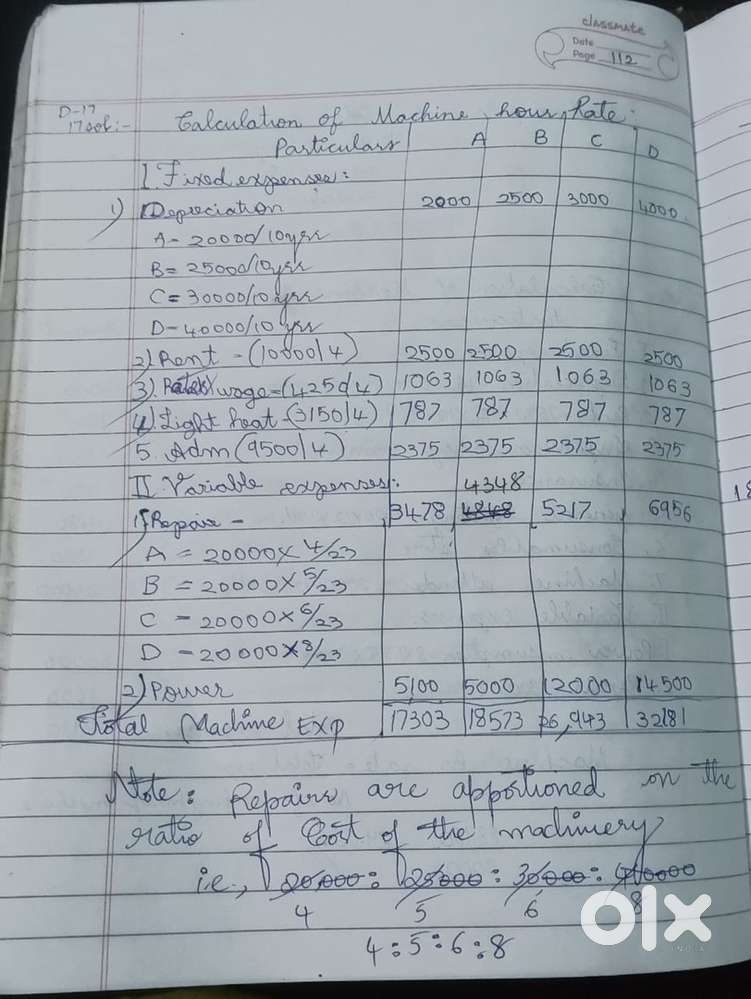 classmate
Date
Page 112
D-17
17 sol:- Calculation of Machine hour Rate.
Particulars A B C D
I. Fixed expenses:
1) Depreciation 2000 2500 3000 4000
A- 20000/10yrs
B= 25000/10yrs
C= 30000/10 yrs
D- 40000/10 yrs
2) Rent - (10000/4) 2500 2500 2500 2500
3) wage=(4250/4) 1063 1063 1063 1063
4) Light heat-(3150/4) 787 787 787 787
5. Adm (9500/4) 2375 2375 2375 2375
II. Variable expenses: 4348
1) Repair - 3478 4848 5217 6956
A = 20000X 4/23
B = 20000X 5/23
C = 20000X 6/23
D = 20000X 8/23
2) Power 5100 5000 12000 14500
Total Machine EXP 17303 18573 26,943 32181
Note: Repairs are apportioned on the
ratio of Cost of the machinery
i.e., 20000: 25000: 30000: 40000
4 5 6 8
4:5:6:8
olx
INDIA